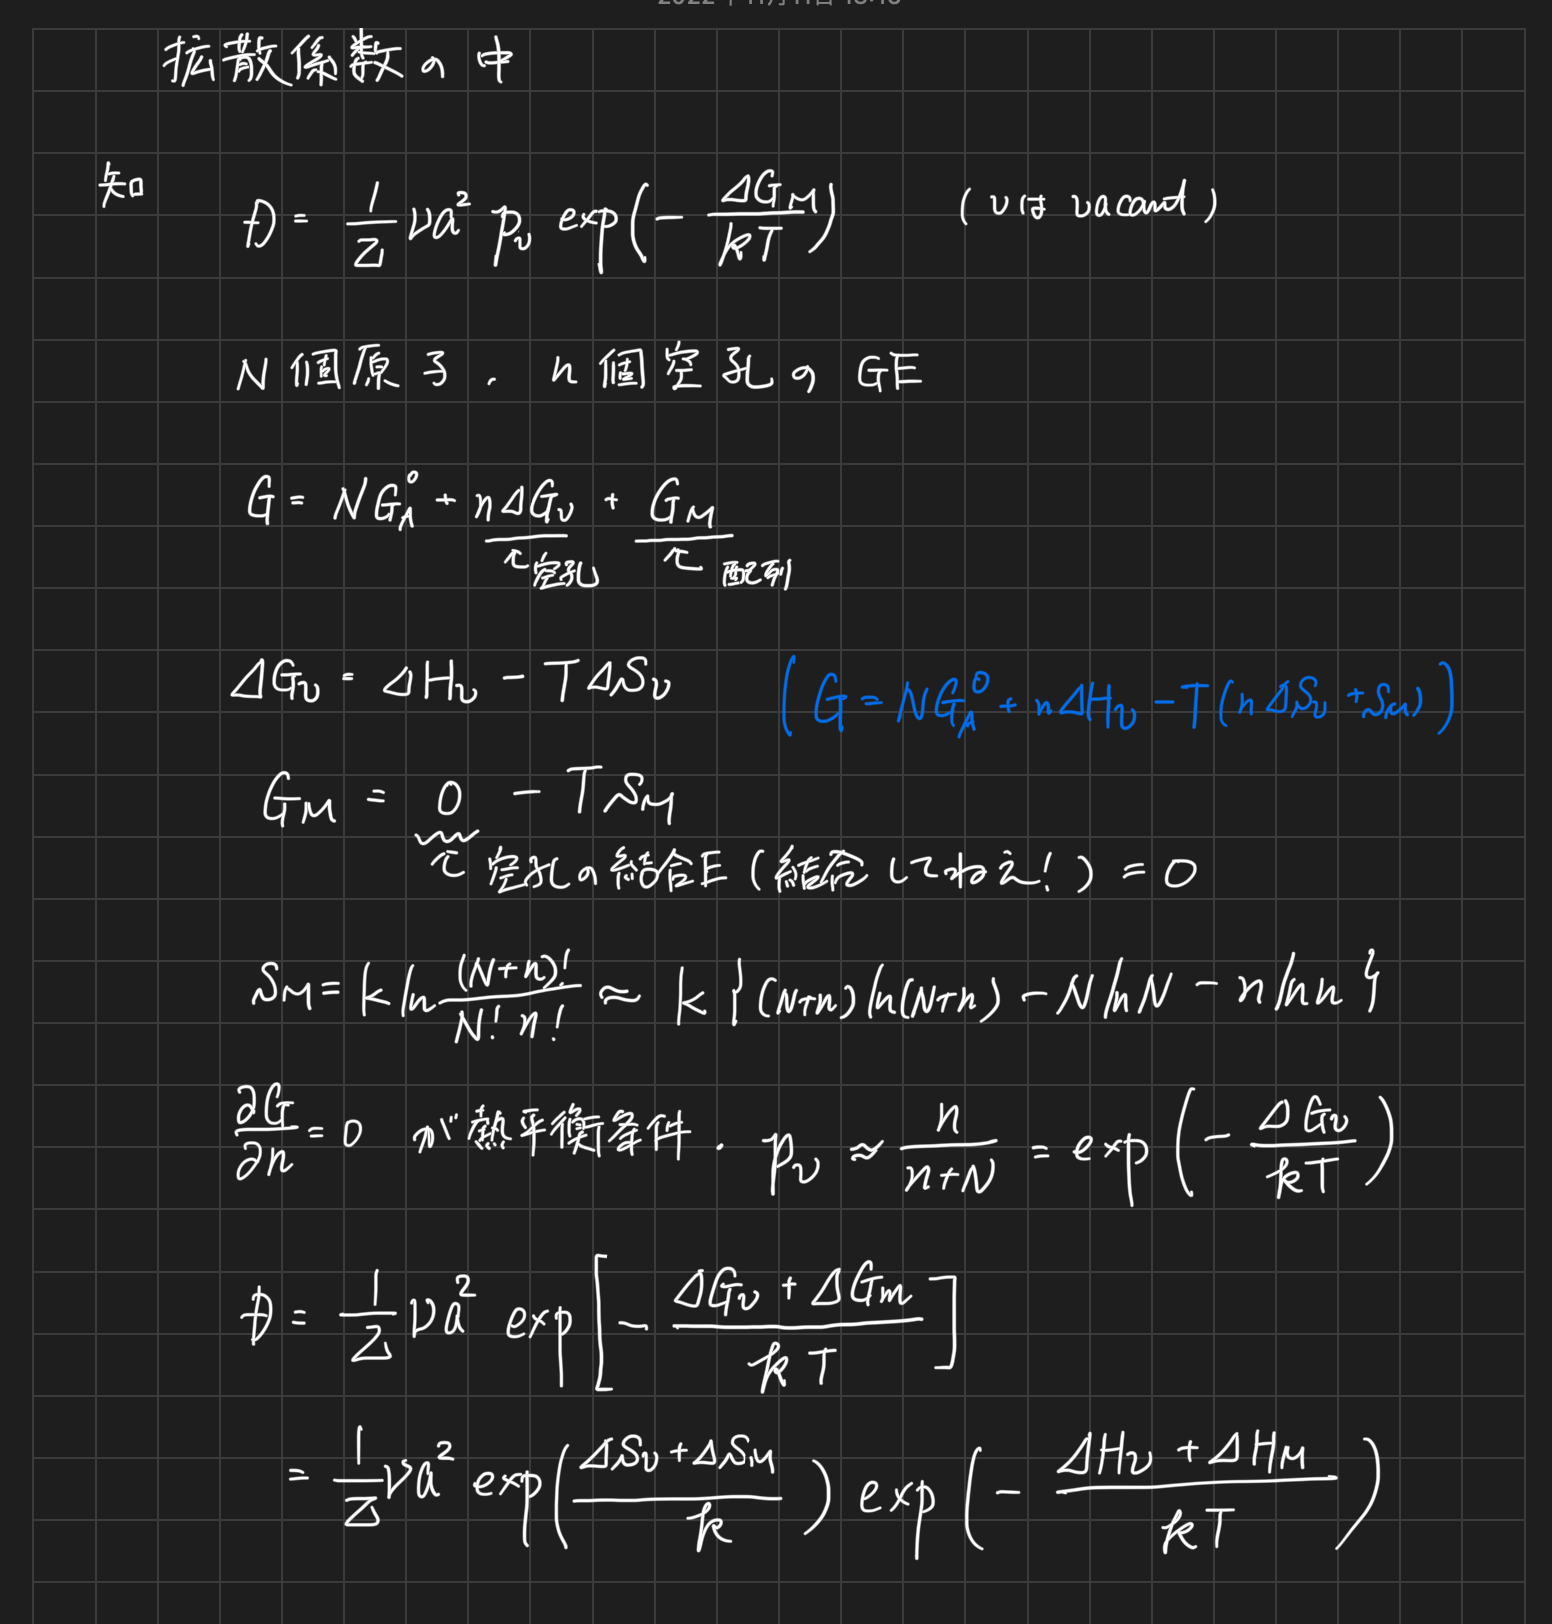 拡散係数の中
知 D = 1/Z νa² pᵥ exp(- ΔG_M/kT) (vは vacant)
N個原子. n個空孔の GE
G = NG_A⁰ + nΔGᵥ + G_M
↖空孔 ↖ 配列
ΔGᵥ = ΔHᵥ - TΔSᵥ (G = NG_A⁰ + nΔHᵥ - T(nΔSᵥ + S_M))
G_M = 0 - TS_M
↖ 空孔の結合E (結合してねえ!) = 0
S_M = k ln (N+n)!/N! n! ≈ k{(N+n)ln(N+n) - N ln N - n ln n}
∂G/∂n = 0 が熱平衡条件. pᵥ ≈ n/n+N = exp(- ΔGᵥ/kT)
D = 1/Z νa² exp[- ΔGᵥ + ΔG_m/kT]
= 1/Z νa² exp(ΔSᵥ + ΔS_M/k) exp(- ΔHᵥ + ΔH_M/kT)